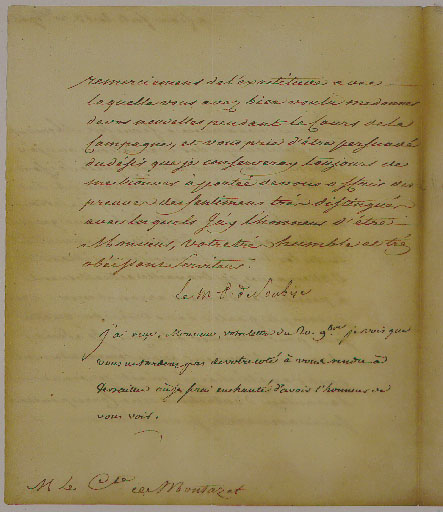 remerciemens de l'exactitude avec
laquelle vous avez bien voulu me donner
de vos nouvelles pendant le Cours de la
Campagne, et vous prie d'être persuadé
du desir que je conserveray toujours de
me trouver à portée de vous offrir des
preuves des sentimens tres distingués
avec lesquels J'ay l'honneur d'être
Monsieur, Votre très humble et très
obéissant Serviteur.
le M. P. de Soubise
J'ai reçu, Monsieur, votre lettre du 20. 9bre je vois que
vous ne tarderez pas de votre coté à vous rendre à
Versailles où je serai enchanté d'avoir l'honneur de
vous voir.
M. le Cte de Montazet